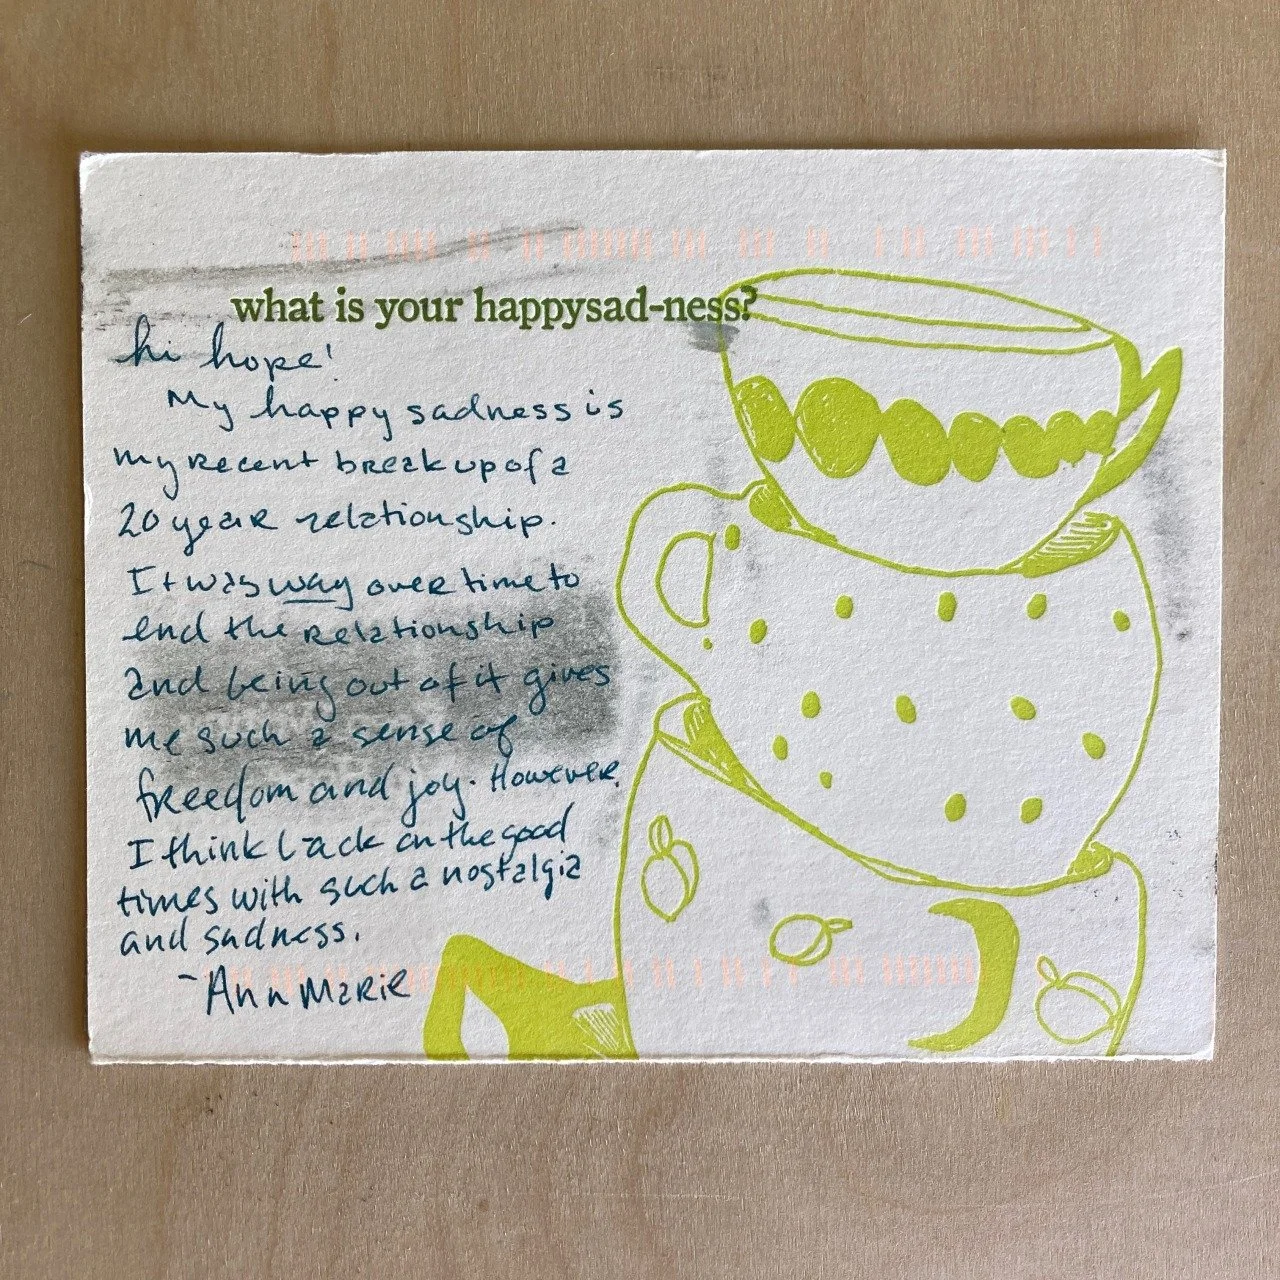 what is your happysad-ness?
hi hope!
My happy sadness is
my recent breakup of a
20 year relationship.
It was way over time to
end the relationship
and being out of it gives
me such a sense of
freedom and joy. However,
I think back on the good
times with such a nostalgia
and sadness.
~Ann Marie